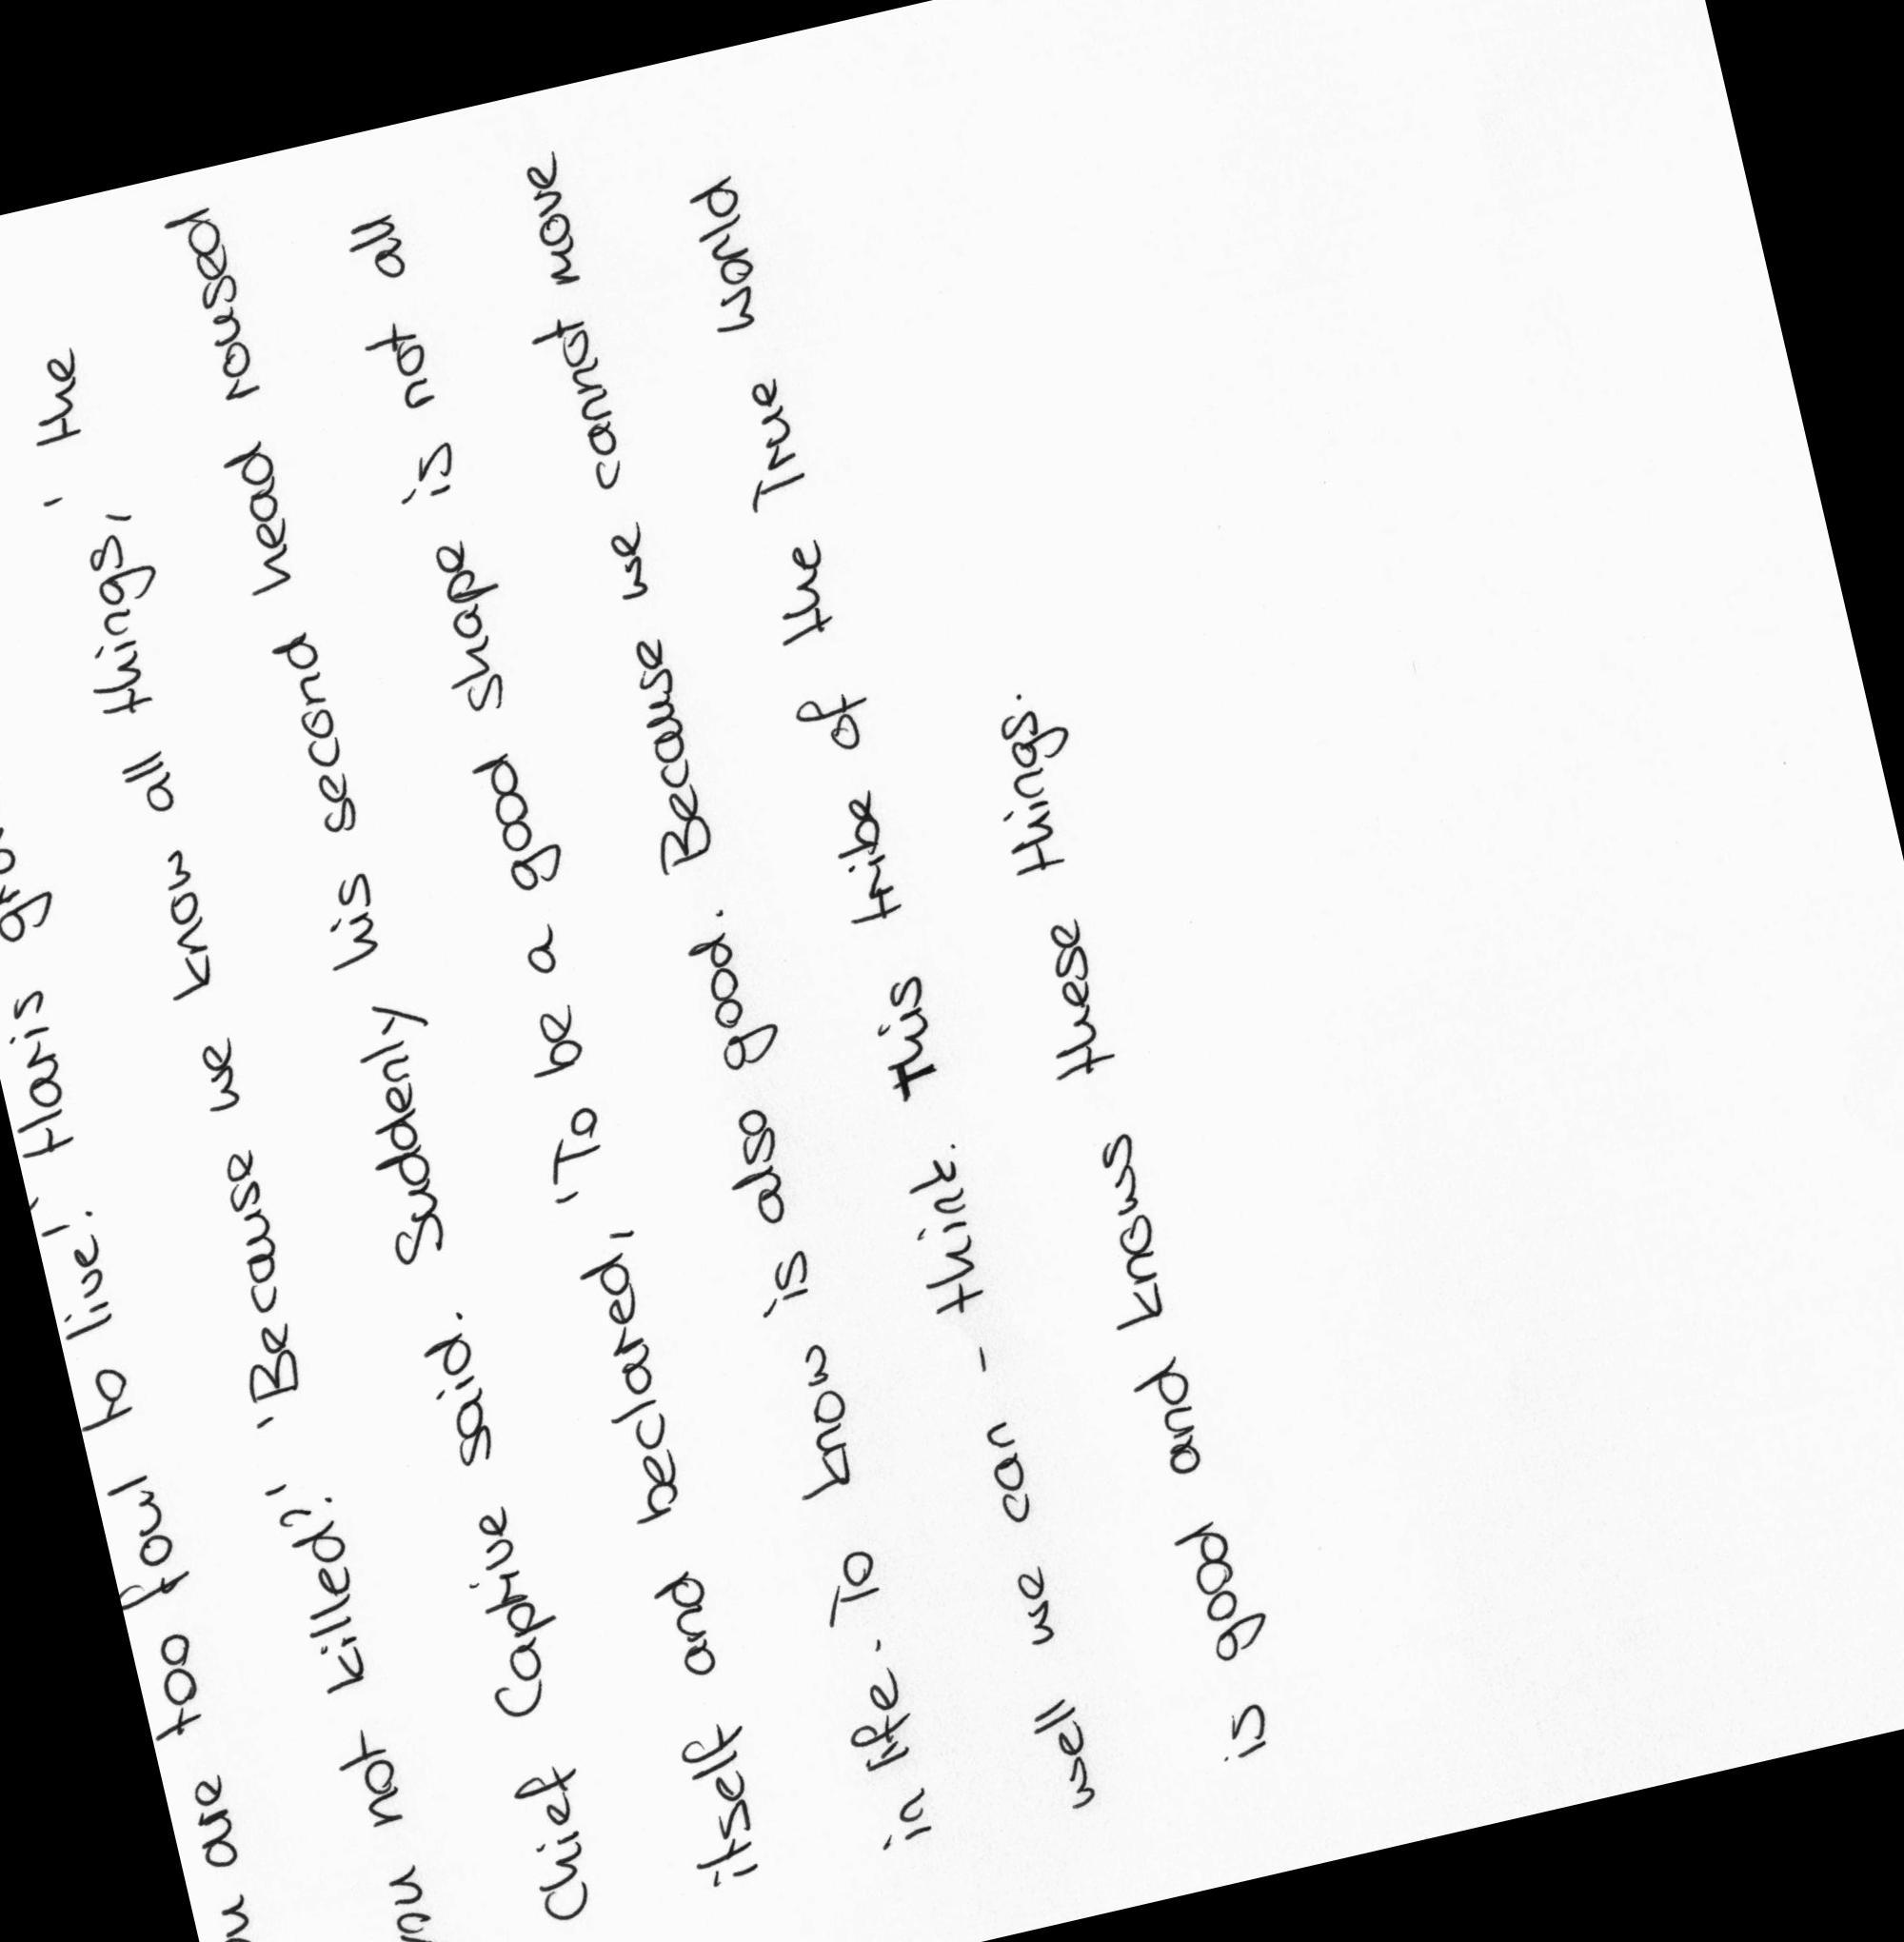 are too foul to live!' Haris
not killed?' 'Because we know all things,' the
Chief Captive said. Suddenly his second head roused
itself and declared, 'To be a good shape is not all
in life. To know is also good. Because we cannot move
well we can - think. This tribe of the True World
is good and knows these things.